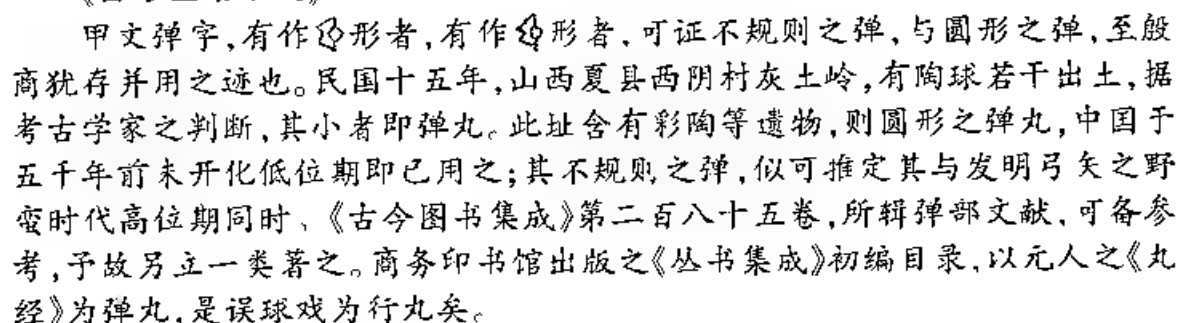 甲文弹字,有作形者,有作形者,可证不规则之弹,与圆形之弹,至殷
商犹存并用之迹也。民国十五年,山西夏县西阴村灰土岭,有陶球若干出土,据
考古学家之判断,其小者即弹丸。此址含有彩陶等遗物,则圆形之弹丸,中国于
五千年前未开化低位期即已用之;其不规则之弹,似可推定其与发明弓矢之野
蛮时代高位期同时、《古今图书集成》第二百八十五卷,所辑弹部文献,可备参
考,予故另立一类著之。商务印书馆出版之《丛书集成》初编目录,以元人之《丸
经》为弹丸,是误球戏为行丸矣。